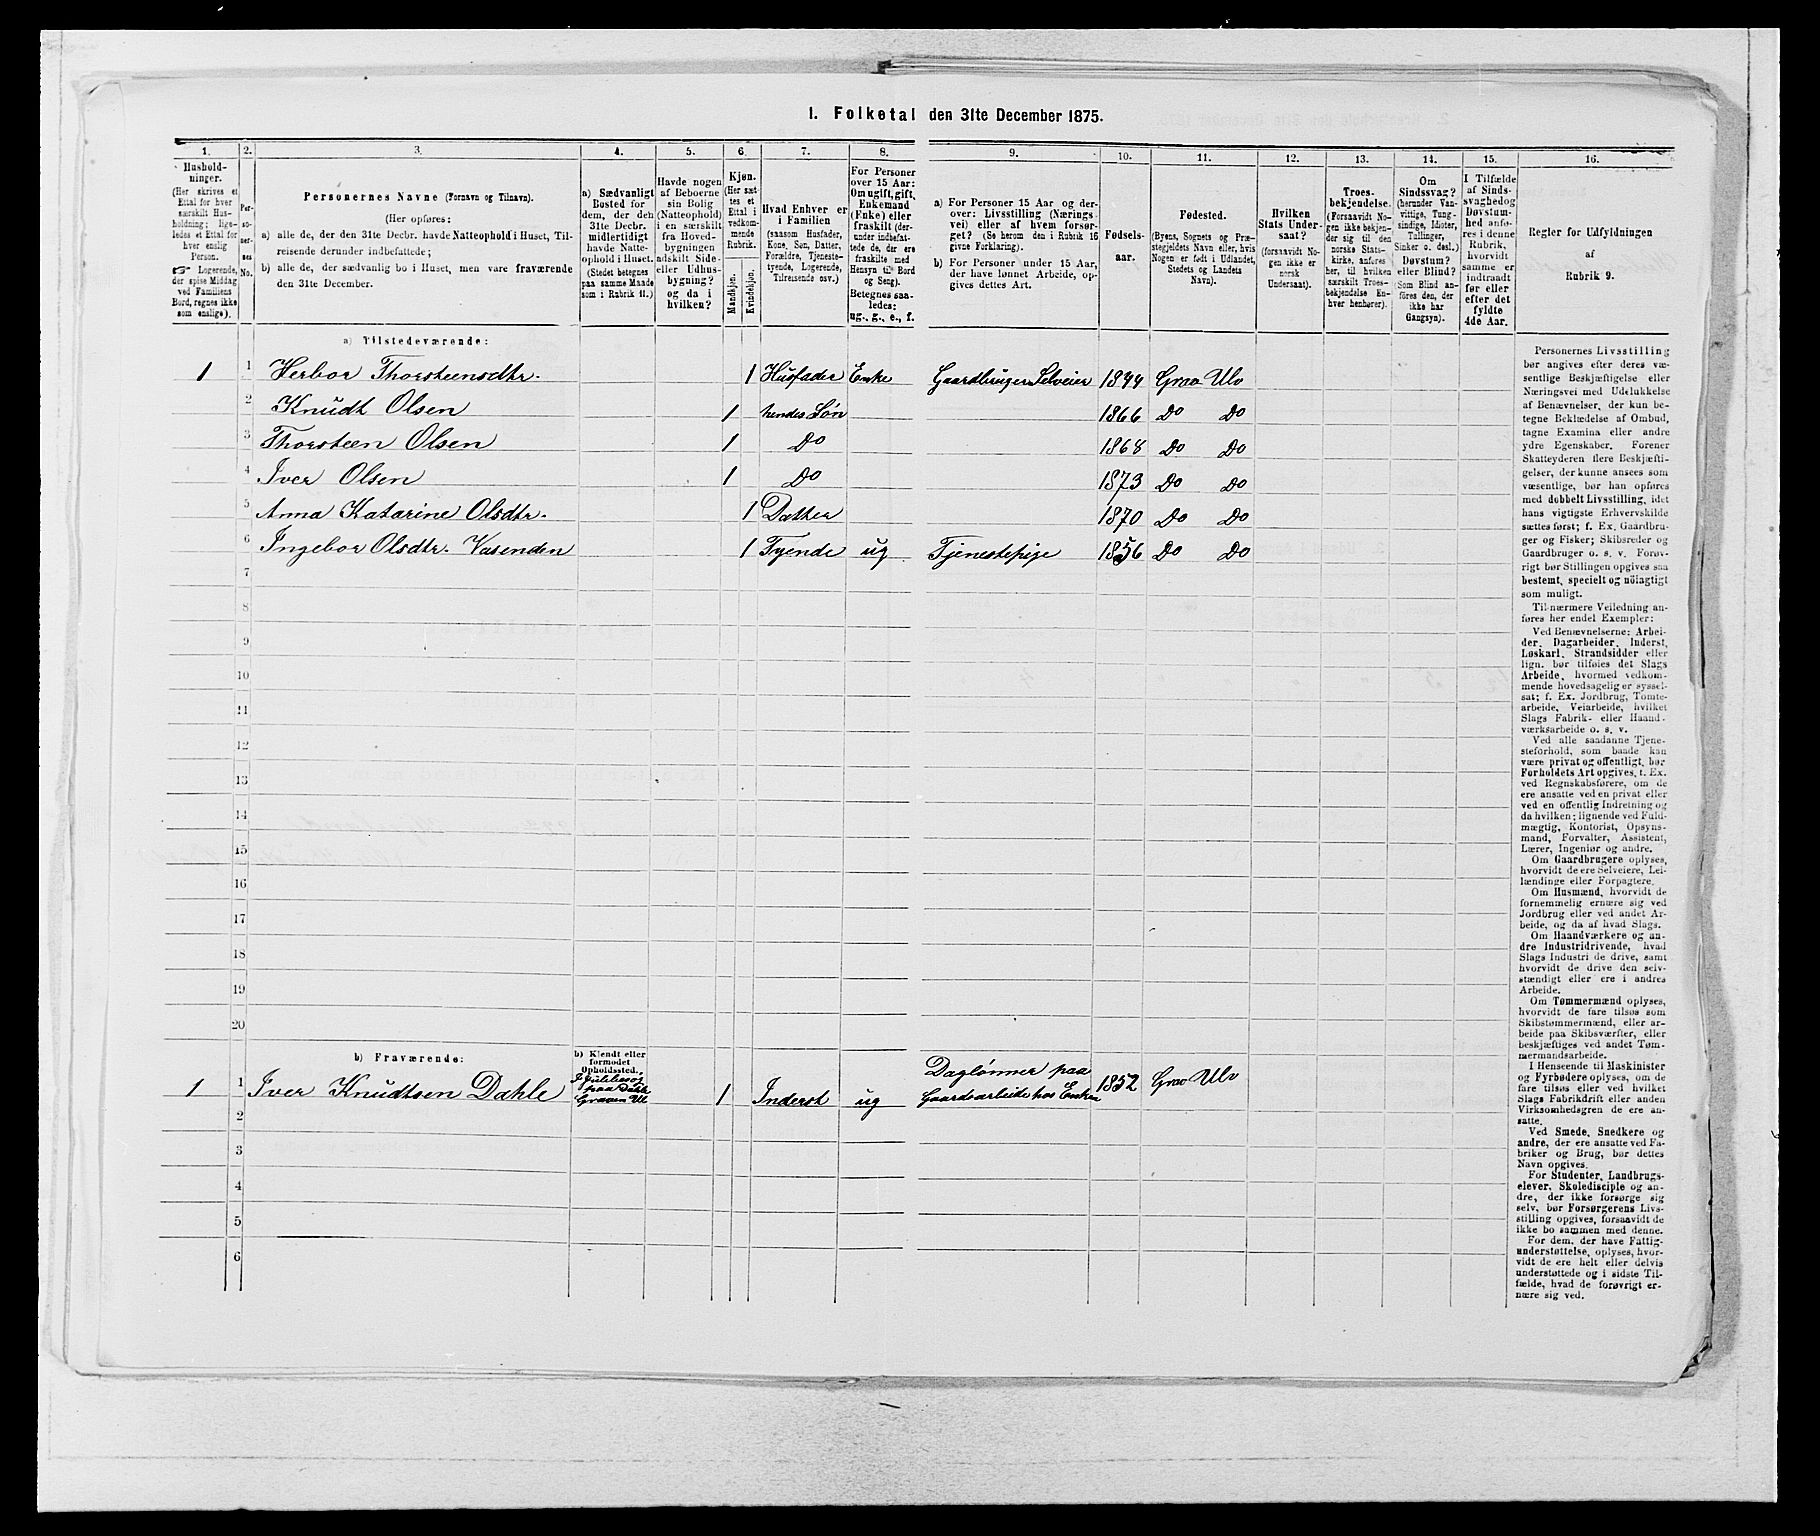 1. Folketal den 31te December 1875.
1. 2. 3. 4. 5. 6. 7. 8. 9. 10. 11. 12. 13. 14. 15. 16.
Hushold-
ninger.
(Her skrives et
Ettal for hver
særskilt Hus-
holdning; lige-
ledes et Ettal for
hver enslig
Person.
☞ Logerende,
der spise Middag
ved Familiens
Bord, regnes ikke
som enslige).
Per-
so-
ner-
nes
No.
Personernes Navne (Fornavn og Tilnavn).
(Her opføres:
a) alle de, der den 31te Decbr. havde Natteophold i Huset, Til-
reisende derunder indbefattede;
b) alle de, der sædvanlig bo i Huset, men vare fraværende
den 31te December.
a) Sædvanligt
Bosted for
dem, der den
31te Decbr.
midlertidigt
havde Natte-
ophold i Huset.
(Stedet betegnes
paa samme Maade
som i Rubrik 11.)
Havde nogen
af Beboerne
sin Bolig
(Natteophold)
i en særskilt
fra Hoved-
bygningen
adskilt Side-
eller Udhus-
bygning?
og da i
hvilken?
Kjøn.
(Her sæt-
tes et
Ettal i
vedkom-
mende
Rubrik.
Mandkjøn.
Kvindekjøn.
Hvad Enhver er
i Familien
(saasom Husfader,
Kone, Søn, Datter,
Forældre, Tjeneste-
tyende, Logerende,
Tilreisende osv.)
For Personer
over 15 Aar:
Om ugift, gift,
Enkemand
(Enke) eller
fraskilt (der-
under indbefat-
tede de, der ere
fraskilte med
Hensyn til Bord
og Seng).
Betegnes saa-
ledes:
ug., g., e., f.
a) For Personer 15 Aar og der-
over: Livsstilling (Nærings-
vei) eller af hvem forsør-
get? (Se herom den i Rubrik 16
givne Forklaring).
b) For Personer under 15 Aar,
der have lønnet Arbeide, op-
gives dettes Art.
Fødsels-
aar.
Fødested.
(Byens, Sognets og Præ-
stegjeldets Navn eller, hvis
Nogen er født i Udlandet,
Stedets og Landets
Navn).
Hvilken
Stats Under-
saat?
(forsaavidt No-
gen ikke er
norsk
Undersaat).
Troes-
bekjendelse.
(Forsaavidt No-
gen ikke bekjen-
der sig til den
norske Stats-
kirke, anføres
her, til hvilken
særskilt Troes-
bekjendelse En-
hver henhører).
Om
Sindssvag?
(herunder Van-
vittige, Tung-
sindige, Idioter,
Tullinger,
Sinker o. desl.)
Døvstum?
eller Blind?
(Som Blind an-
føres den, der
ikke har
Gangsyn).
I Tilfælde
af Sinds-
svaghed og
Døvstum-
hed anfø-
res i denne
Rubrik,
hvorvidt
samme er
indtraadt
før eller
efter det
fyldte
4de Aar.
Regler for Udfyldningen
af
Rubrik 9.
a) Tilstedeværende:
1 1 Herbor Thorsteensdtr. 1 Husfader Enke Gaardbruger Selveier 1844 Grav Ulv
2 Knudt Olsen 1 hendes Søn 1866 Do Do
3 Thorsteen Olsen 1 Do 1868 Do Do
4 Iver Olsen 1 Do 1873 Do Do
5 Anna Katarine Olsdtr. 1 Datter 1870 Do Do
6 Ingebor Olsdtr. Vasenden 1 Tyende ug Tjenestepige 1856 Do Do
7
8
9
10
11
12
13
14
15
16
17
18
19
20
b) Fraværende:
b) Kjendt eller
formodet
Opholdssted.
paa Dahle
Graven Ul
Daglønner paa
1 1 Iver Knudtsen Dahle 1 Inderst ug Gaardsarbeide hos Enken 1852 Grav Ulv
2
3
4
5
6
Personernes Livsstilling
bør angives efter deres væ-
sentlige Beskjæftigelse eller
Næringsvei med Udelukkelse
af Benævnelser, der kun be-
tegne Beklædelse af Ombud,
tagne Examina eller andre
ydre Egenskaber. Forener
Skatteyderen flere Beskjæfti-
gelser, der kunne ansees som
væsentlige, bør han opføres
med dobbelt Livsstilling, idet
hans vigtigste Erhvervskilde
sættes først; f. Ex. Gaardbru-
ger og Fisker; Skibsreder og
Gaardbruger o. s. v. Forøv-
rigt bør Stillingen opgives saa
bestemt, specielt og nöiagtigt
som muligt.
Til nærmere Veiledning an-
føres her endel Exempler:
Ved Benævnelserne: Arbei-
der, Dagarbeider, Inderst,
Løskarl, Strandsidder eller
lign. bør tilføies det Slags
Arbeide, hvormed vedkom-
mende hovedsagelig er syssel-
sat; f. Ex. Jordbrug, Tomte-
arbeide, Veiarbeide, hvilket
Slags Fabrik- eller Haand-
værksarbeide o. s. v.
Ved alle saadanne Tjene-
steforhold, som baade kan
være privat og offentligt, bør
Forholdets Art opgives, t. Ex.
ved Regnskabsførere, om de
ere ansatte ved en privat eller
ved en offentlig Indretning og
da hvilken; lignende ved Fuld-
mægtig, Kontorist, Opsyns-
mand, Forvalter, Assistent,
Lærer, Ingeniør og andre.
Om Gaardbrugere oplyses,
hvorvidt de ere Selveiere, Lei-
lændinge eller Forpagtere.
Om Husmænd, hvorvidt de
fornemmelig ernære sig ved
Jordbrug eller ved andet Ar-
beide, og da af hvad Slags.
Om Haandværkere og an-
dre Industridrivende, hvad
Slags Industri de drive, samt
hvorvidt de drive den selv-
stændigt eller ere i andres
Arbeide.
Om Tømmermænd oplyses,
hvorvidt de fare tilsøs som
Skibstømmermænd, eller ar-
beide paa Skibsværfter, eller
beskjæftiges ved andet Tøm-
mermandsarbeide.
I Henseende til Maskinister
og Fyrbødere oplyses, om de
fare tilsøs eller ved hvilket
Slags Fabrikdrift eller anden
Virksomhedsgren de ere an-
satte.
Ved Smede, Snedkere og
andre, der ere ansatte ved Fa-
briker og Brug, bør dettes
Navn opgives.
For Studenter, Landbrugs-
elever, Skoledisciple og an-
dre, der ikke forsørge sig
selv, bør Forsørgerens Livs-
stilling opgives, forsaavidt de
ikke bo sammen med denne.
For dem, der have Fattig-
understøttelse, oplyses, hvor-
vidt de ere helt eller delvis
understøttede og i sidste Til-
fælde, hvad de forøvrigt er-
nære sig ved.